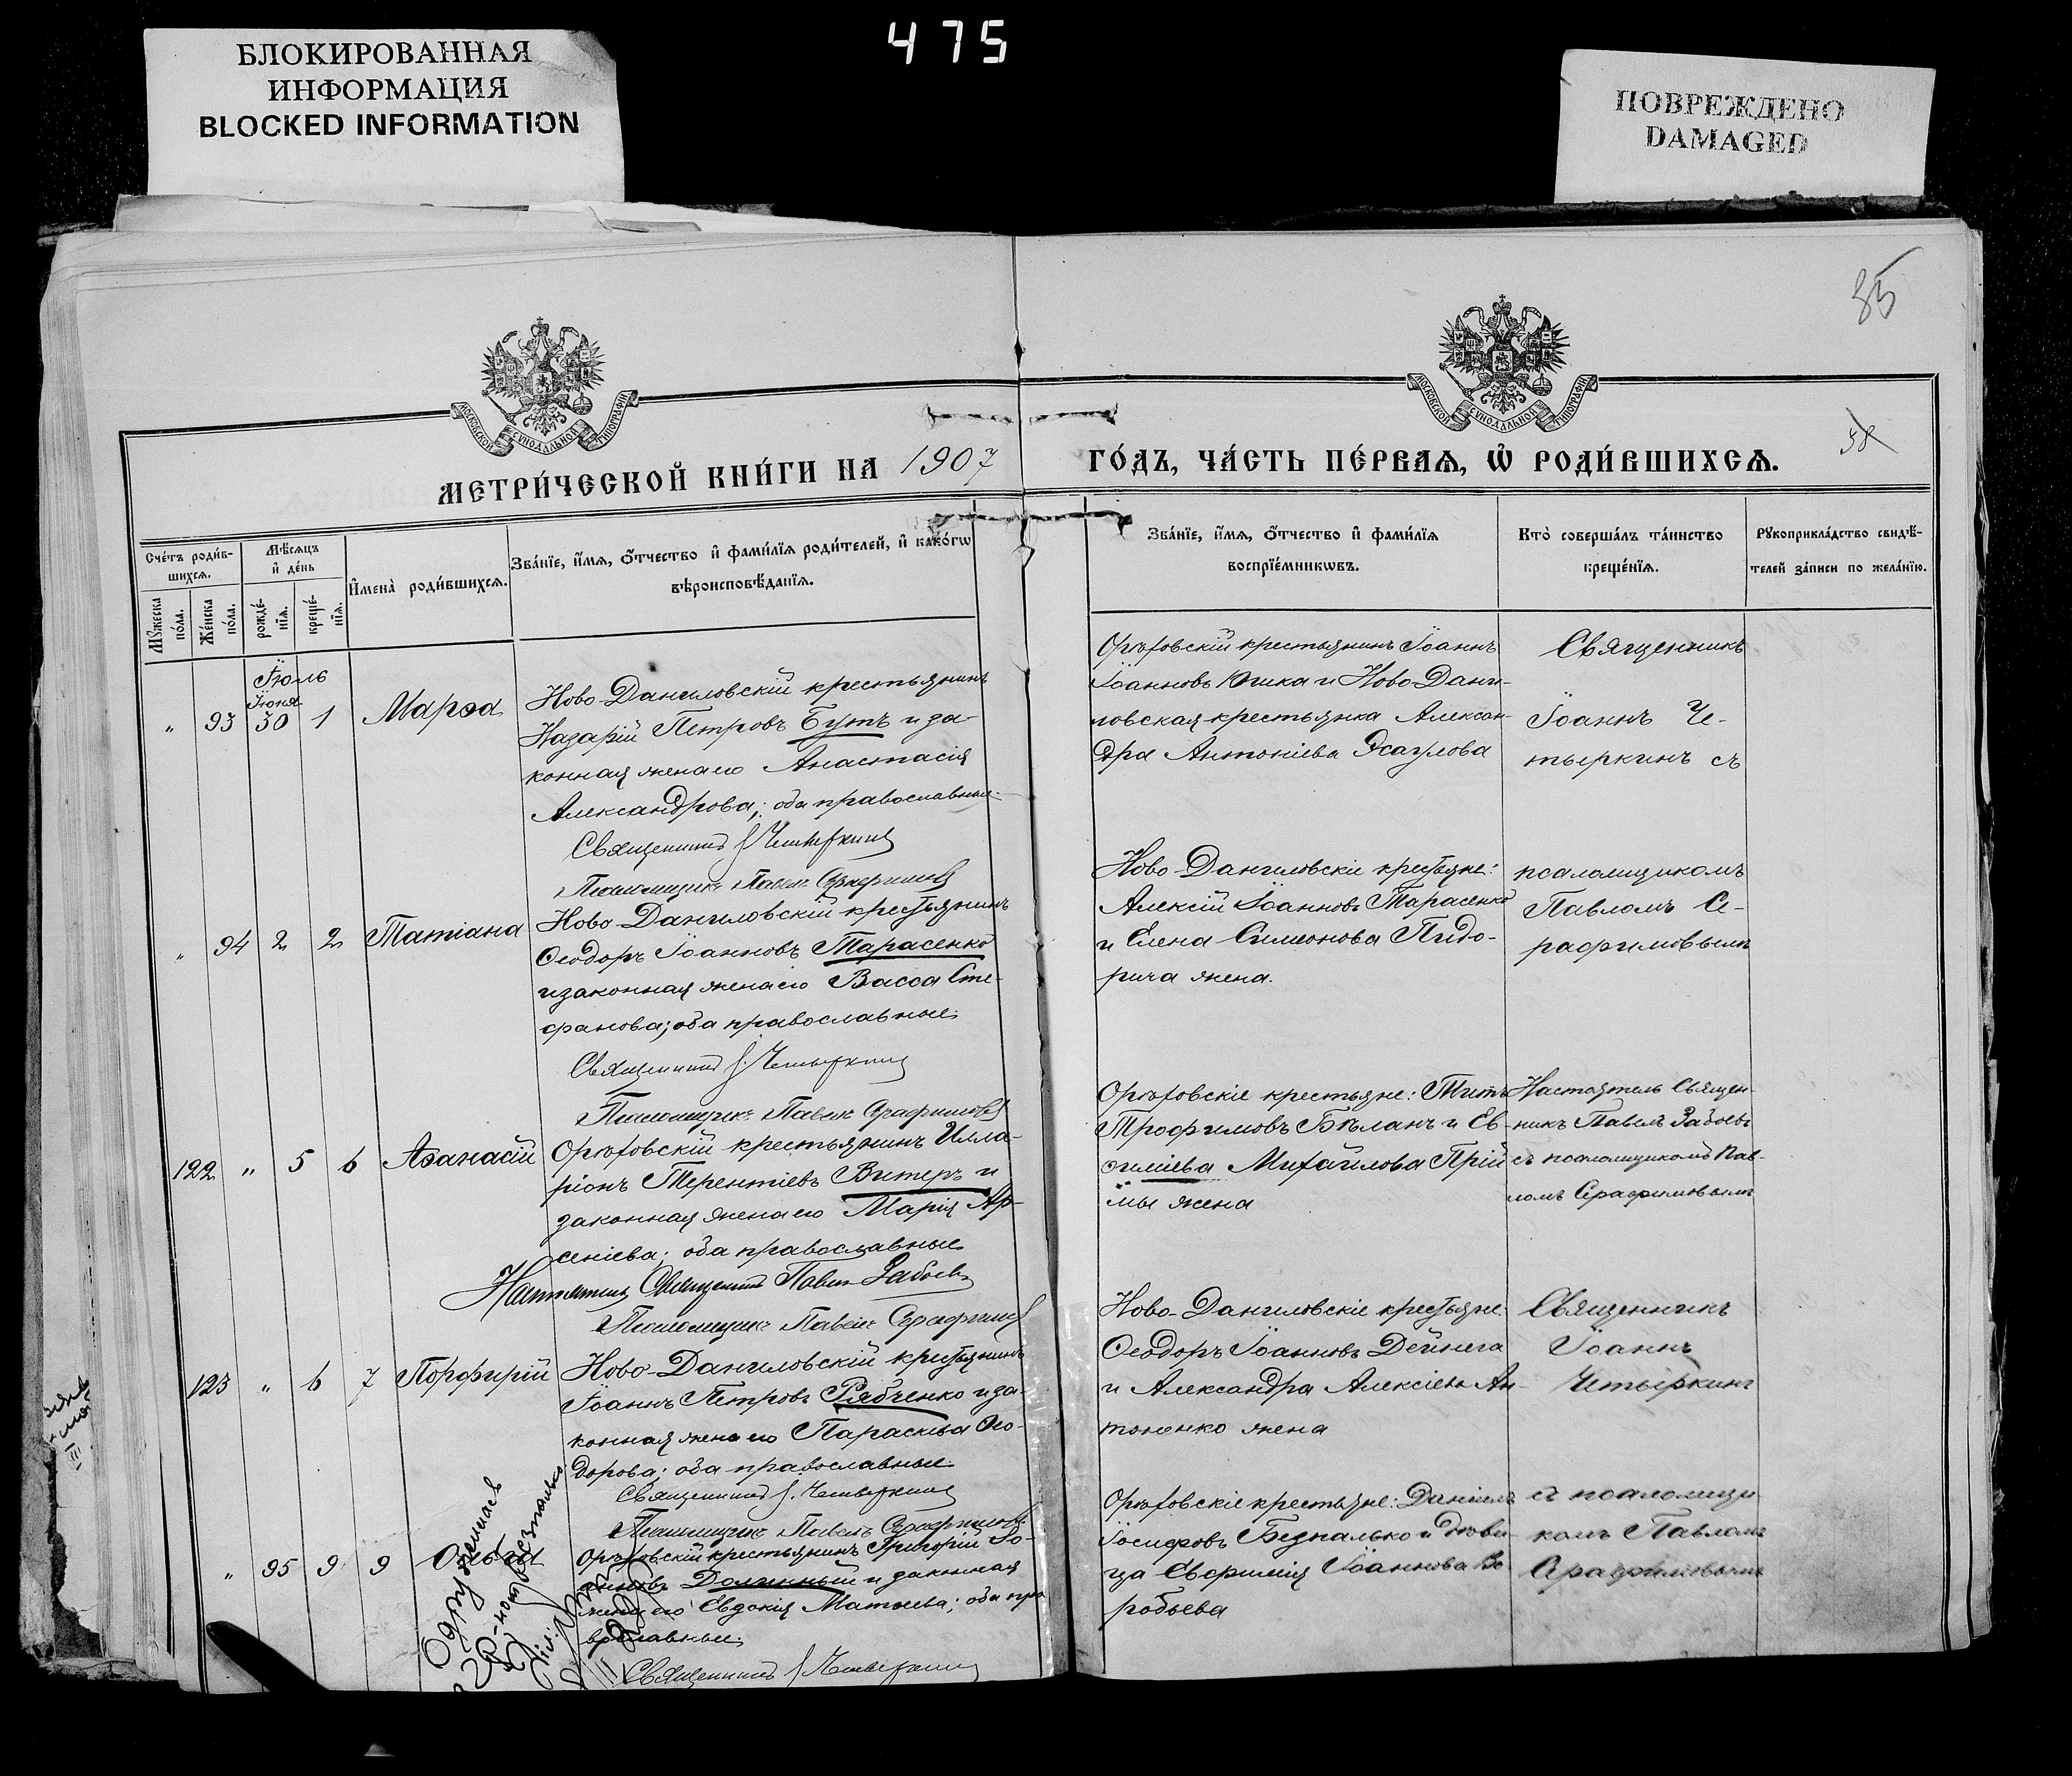 475
БЛОКИРОВАННАЯ
ИНФОРМАЦИЯ
BLOCKED INFORMATION
ПОВРЕЖДЕНО
DAMAGED
85
58
МОСКОВСКОЙ СѴНОДАЛЬНОЙ ТИПОГРАФІИ
МОСКОВСКОЙ СѴНОДАЛЬНОЙ ТИПОГРАФІИ
МЕТРИ́ЧЕСКОЙ КНИ́ГИ НА 1907
ГО́ДЪ, ЧА́СТЬ ПЕ́РВАѦ, Ѡ҆ РОДИ́ВШИХСѦ.
Сче́тъ роди́в-
шихсѧ.
Мꙋ́жеска
по́ла.
Же́нска
по́ла.
Мѣ́сѧцъ
и҆ де́нь
рожде́-
нїѧ.
креще́-
нїѧ.
И҆мена̀ роди́вшихсѧ.
Зва́нїе, и҆́мѧ, ѻ҆́тчество и҆ фами́лїѧ роди́телей, и҆ како́гѡ
вѣроисповѣ́данїѧ.
Зва́нїе, и҆́мѧ, ѻ҆́тчество и҆ фами́лїѧ
воспрїе́мникѡвъ.
Кто̀ соверша́лъ та́инство
креще́нїѧ.
Рꙋкоприкла́дство свидѣ́-
телей за́писи по жела́нїю.
Іюль
Іюня
" 93 30 1 Марѳа
Ново-Даниловскій крестьянинъ
Назарій Петровъ Бутъ и за-
конная жена его Анастасія
Александрова; оба православные.
Священникъ І. Четыркинъ
Псаломщикъ Павелъ Серафимовъ
Орѣховскій крестьянинъ Іоаннъ
Іоанновъ Юшка и Ново-Дани-
ловская крестьянка Алексан-
дра Антоніева Эсаулова
Священникъ
Іоаннъ Че-
тыркинъ съ
" 94 2 2 Татіана
Ново-Даниловскій крестьянинъ
Ѳеодоръ Іоанновъ Тарасенко
и законная жена его Васса Сте-
фанова; оба православные.
Священникъ І. Четыркинъ
Псаломщикъ Павелъ Серафимовъ
Ново-Даниловскіе крестьяне:
Алексій Іоанновъ Тарасенко
и Елена Симеонова Пидо-
рича жена.
псаломщикомъ
Павломъ Се-
рафимовымъ
122 " 5 6 Аѳанасій
Орѣховскій крестьянинъ Илла-
ріонъ Терентіевъ Витеръ и
законная жена его Марія Ар-
сеніева; оба православные.
Настоятель Священникъ Павелъ Забоевъ
Псаломщикъ Павелъ Серафимовъ
Орѣховскіе крестьяне: Титъ
Трофимовъ Бѣланъ и Ев-
ѳиміева Михайлова Прій-
мы жена
Настоятель Священ-
никъ Павелъ Забоевъ
съ псаломщикомъ Пав-
ломъ Серафимовымъ
123 " 6 7 Порфирій
Ново-Даниловскій крестьянинъ
Іоаннъ Петровъ Рябченко и за-
конная жена его Параскева Ѳео-
дорова; оба православные.
Священникъ І. Четыркинъ
Псаломщикъ Павелъ Серафимовъ
Ново-Даниловскіе крестьяне:
Ѳеодоръ Іоанновъ Дейнега
и Александра Алексіева Ан-
тоненко жена
Священникъ
Іоаннъ
Четыркинъ
" 95 9 9 Ольга
Орѣховскій крестьянинъ Григорій Іо-
анновъ Долинный и законная
жена его Евдокія Матѳеева; оба пра-
вославные.
Священникъ І. Четыркинъ
Орѣховскіе крестьяне: Даніилъ
Іосифовъ Безпалько и дѣви-
ца Евфимія Іоаннова Во-
робьева
съ псаломщи-
комъ Павломъ
Серафимовымъ